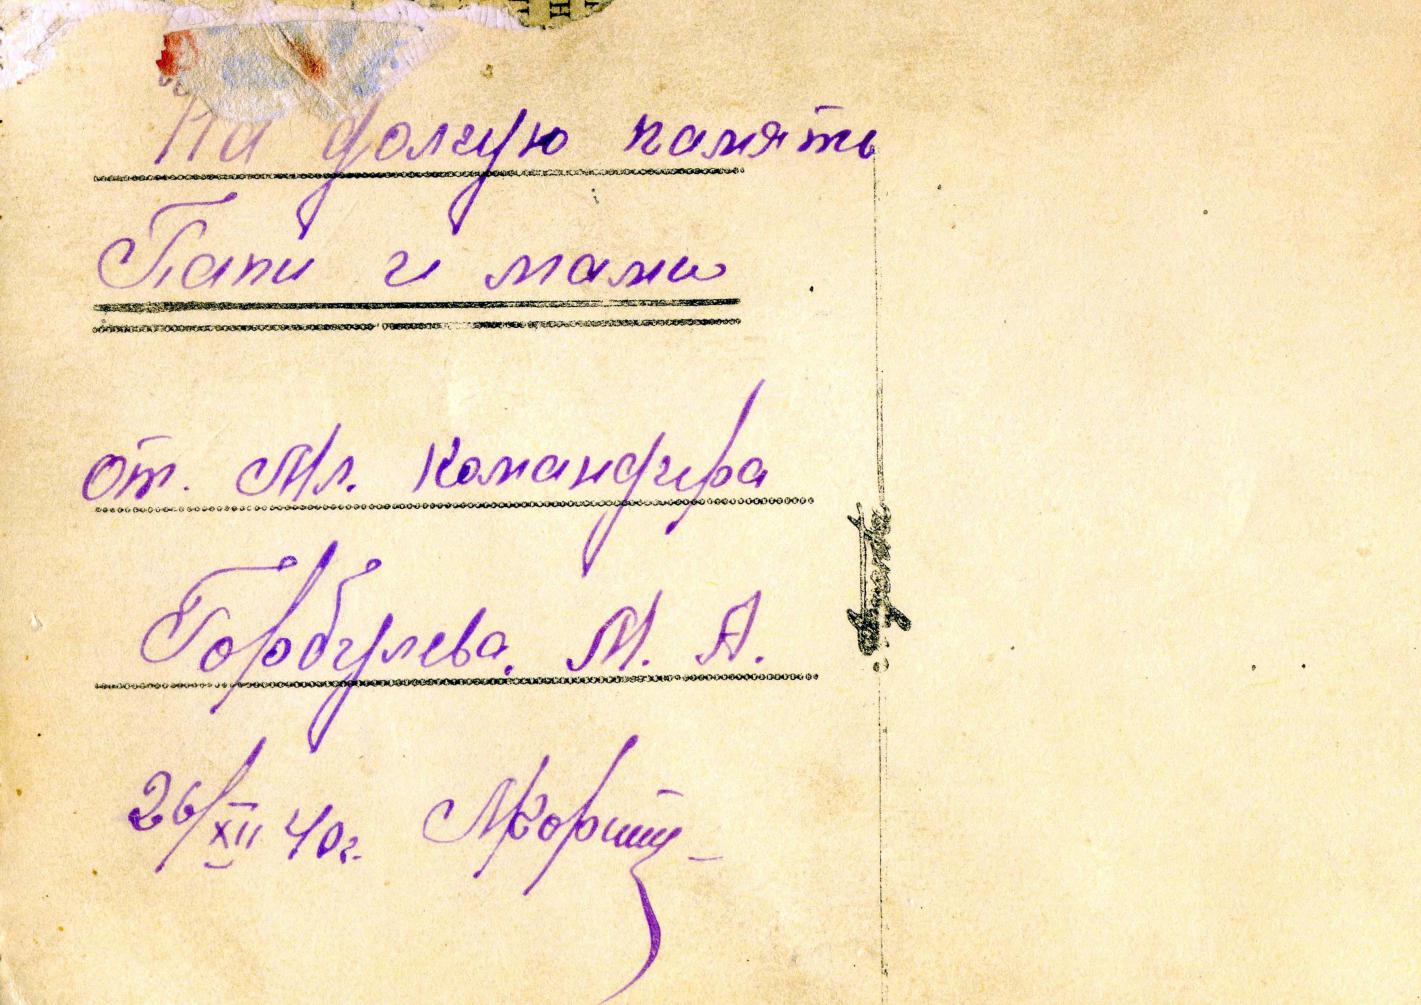 На долгую память
Папи и мами
от. Мл. Командира
Горбулева. М. А.
26/XII 40г.